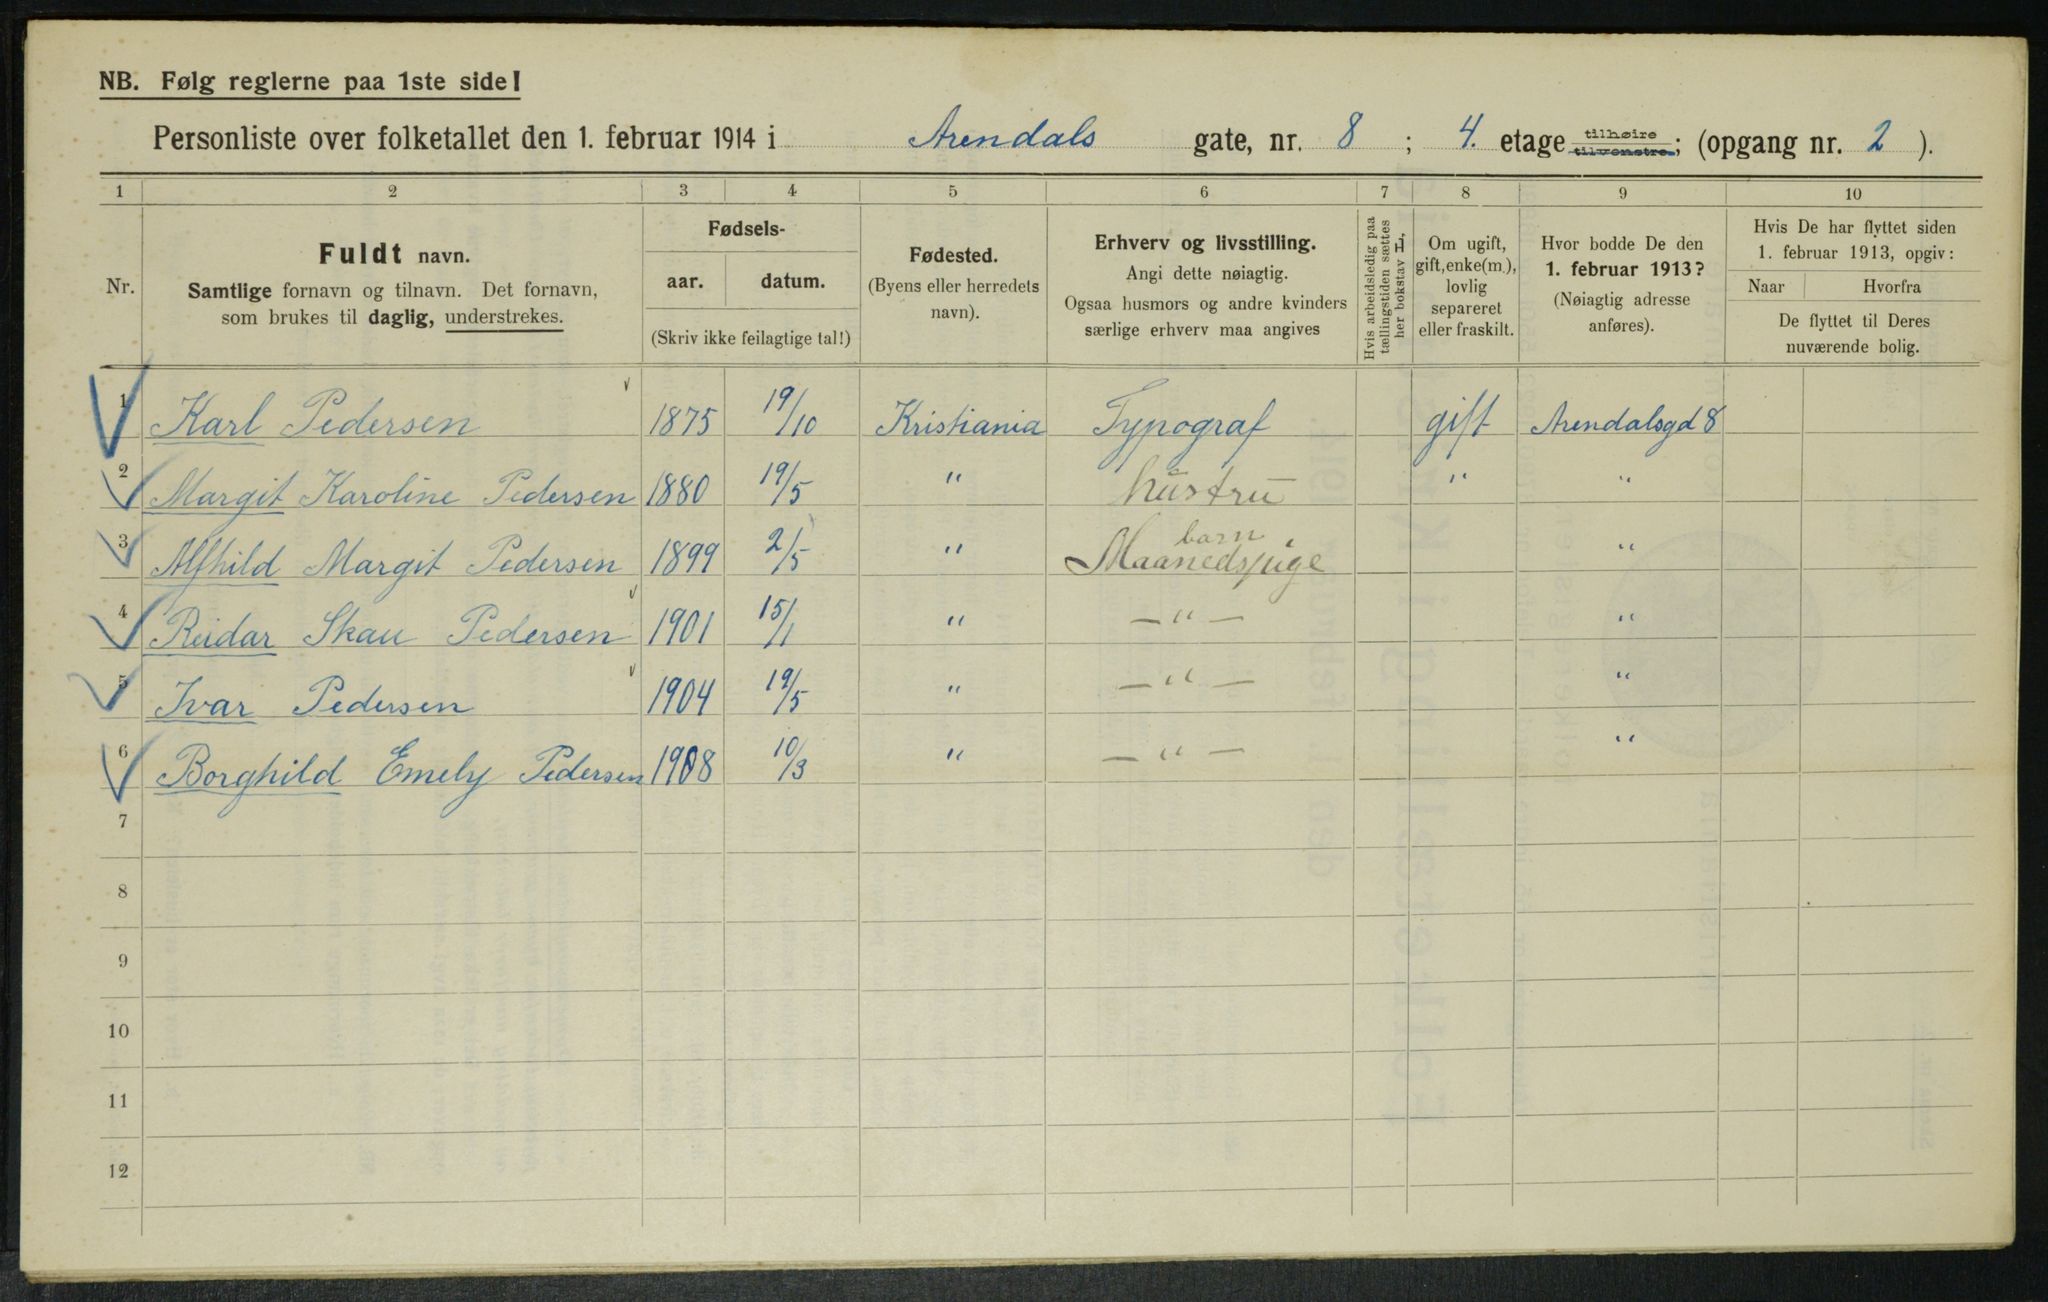 NB. Følg reglerne paa 1ste side!
Personliste over folketallet den 1. februar 1914 i Arendals gate, nr. 8 ; 4. etage tilhøire tilvenstre; (opgang nr. 2 ).
1 2 3 4 5 6 7 8 9 10
Nr.
Fuldt navn.
Samtlige fornavn og tilnavn. Det fornavn,
som brukes til daglig, understrekes.
Fødsels-
aar. datum.
(Skriv ikke feilagtige tal!)
Fødested.
(Byens eller herredets
navn).
Erhverv og livsstilling.
Angi dette nøiagtig.
Ogsaa husmors og andre kvinders
særlige erhverv maa angives
Hvis arbeidsledig paa
tællingstiden sættes
her bokstav L,
Om ugift,
gift, enke(m.),
lovlig
separeret
eller fraskilt.
Hvor bodde De den
1. februar 1913?
(Nøiagtig adresse
anføres).
Hvis De har flyttet siden
1. februar 1913, opgiv:
Naar Hvorfra
De flyttet til Deres
nuværende bolig.
1 Karl Pedersen 1875 19/10 Kristiania Typograf gift Arendalsgd 8
2 Margit Karoline Pedersen 1880 19/5 " hustru " "
3 Alfhild Margit Pedersen 1899 2/5 " barn Maanedspige "
4 Reidar Skau Pedersen 1901 15/1 " — " — "
5 Ivar Pedersen 1904 19/5 " — " — "
6 Borghild Emely Pedersen 1908 10/3 " — " — "
7
8
9
10
11
12